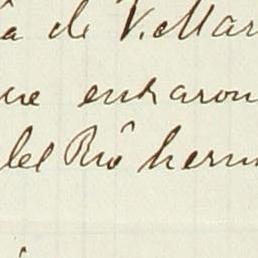 a de V. Mar
ue entraron
del Rio herm